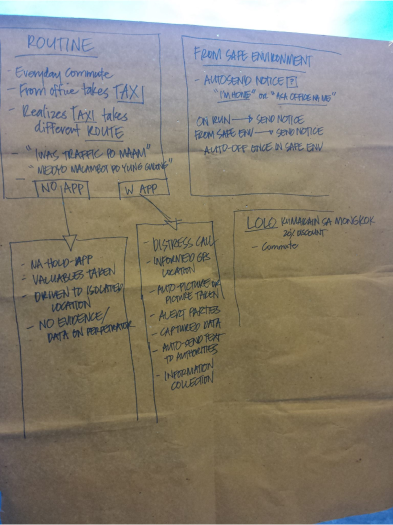 ROUTINE
- Everyday Commute
- From office takes TAXI
- Realizes TAXI takes
different ROUTE
- "IWAS TRAFFIC PO MA'AM"
- "MEDYO MALAMBOT PO YUNG GULONG"
NO APP
W APP
- NA-HOLD-APP
- VALUABLES TAKEN
- DRIVEN TO ISOLATED
LOCATION
- NO EVIDENCE/
DATA ON PERPETRATOR
- DISTRESS CALL
- INFORMED GPS
LOCATION
- AUTO-PICTURE ON
PICTURE TAKEN
- ALERT PARTIES
- CAPTURED DATA
- AUTO-SEND TEXT
TO AUTHORITIES
- INFORMATION
COLLECTION
FROM SAFE ENVIRONMENT
- AUTOSEND NOTICE
"I'M HOME" or "ASA OFFICE NA ME"
ON RUN → SEND NOTICE
FROM SAFE ENV → SEND NOTICE
AUTO-OFF ONCE IN SAFE ENV
LOLO KUMAKAIN SA MONGKOK
20% DISCOUNT
- Commute